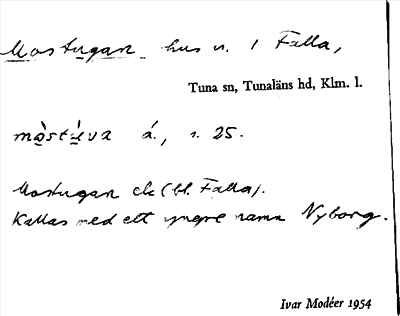 Mostugan hus n. i Falla,
Tuna sn, Tunaläns hd, Klm. l.
mo̱stu̱va á., s. 25.
Mostugan ck (bl. Falla).
Kallas med ett yngre namn Nyborg.
Ivar Modéer 1954